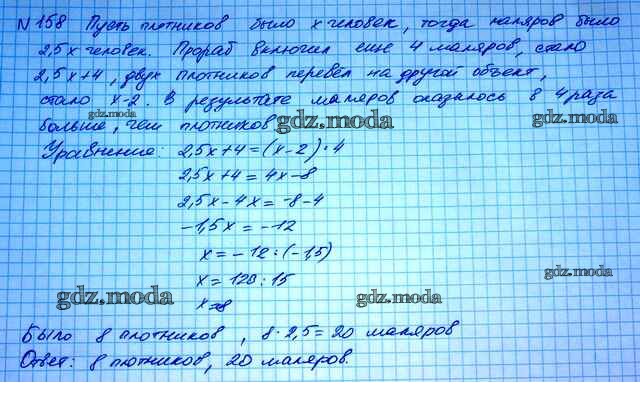 N 158 Пусть плотников было х человек, тогда маляров было
2,5х человек. Прораб включил еще 4 маляров, стало
2,5х+4, двух плотников перевёл на другой объект,
стало х-2. В результате маляров оказалось в 4 раза
больше, чем плотников
gdz.moda
gdz.moda
gdz.moda
Уравнение: 2,5х+4=(х-2)·4
2,5х+4=4х-8
2,5х-4х=-8-4
-1,5х=-12
х=-12:(-1,5)
х=120:15
х=8
gdz.moda
gdz.moda
gdz.moda
Было 8 плотников, 8·2,5=20 маляров
Ответ: 8 плотников, 20 маляров.